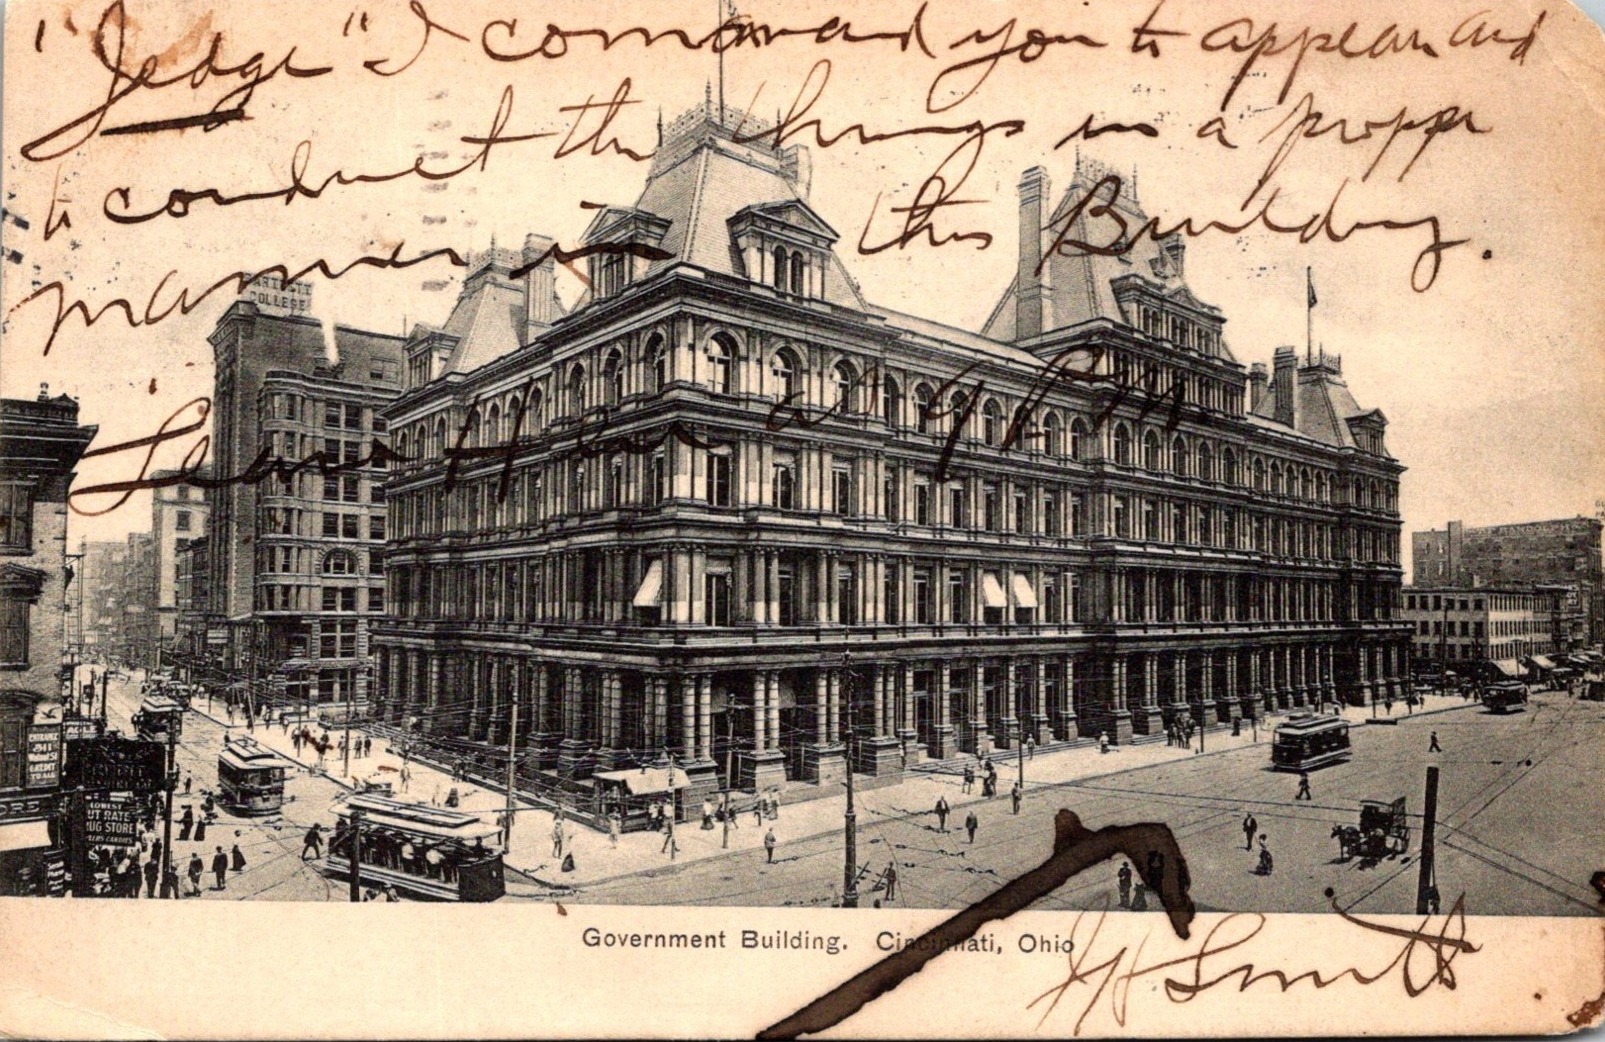 "Jedge" I command you to appear and
to conduct the things in a proper
manner in this Building.
Leave Here at 9 PM
BARTLETT
COLLEGE
ENTRANCE
CREDIT
TO ALL
CUT RATE
DRUG STORE
Government Building. Cincinnati, Ohio
JH Smith